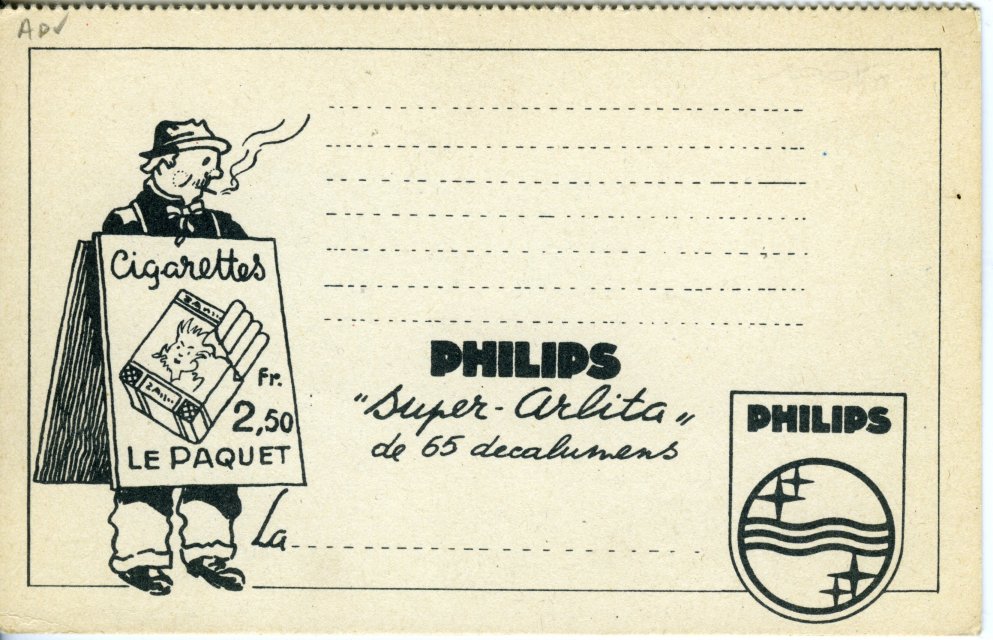 ADV
Cigarettes
Fr.
2,50
LE PAQUET
PHILIPS
"Super-Arlita"
de 65 decalumens
La
PHILIPS